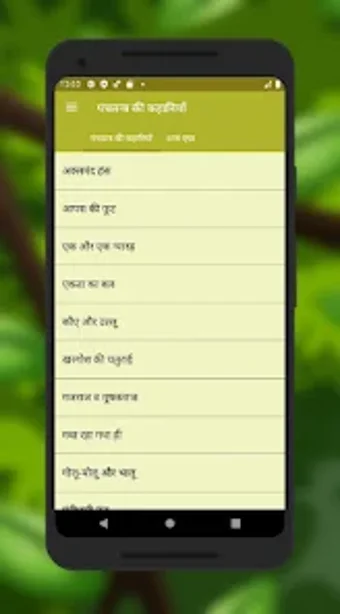 पंचतन्त्र की कहानियाँ
पंचतन्त्र की कहानियाँ
अक्लमंद हंस
आपस की फूट
एक और एक ग्यारह
एकता का बल
कौए और उल्लू
खरगोश की चतुराई
गजराज व मूषकराज
गधा रहा गधा ही
गोलू-मोलू और भालू